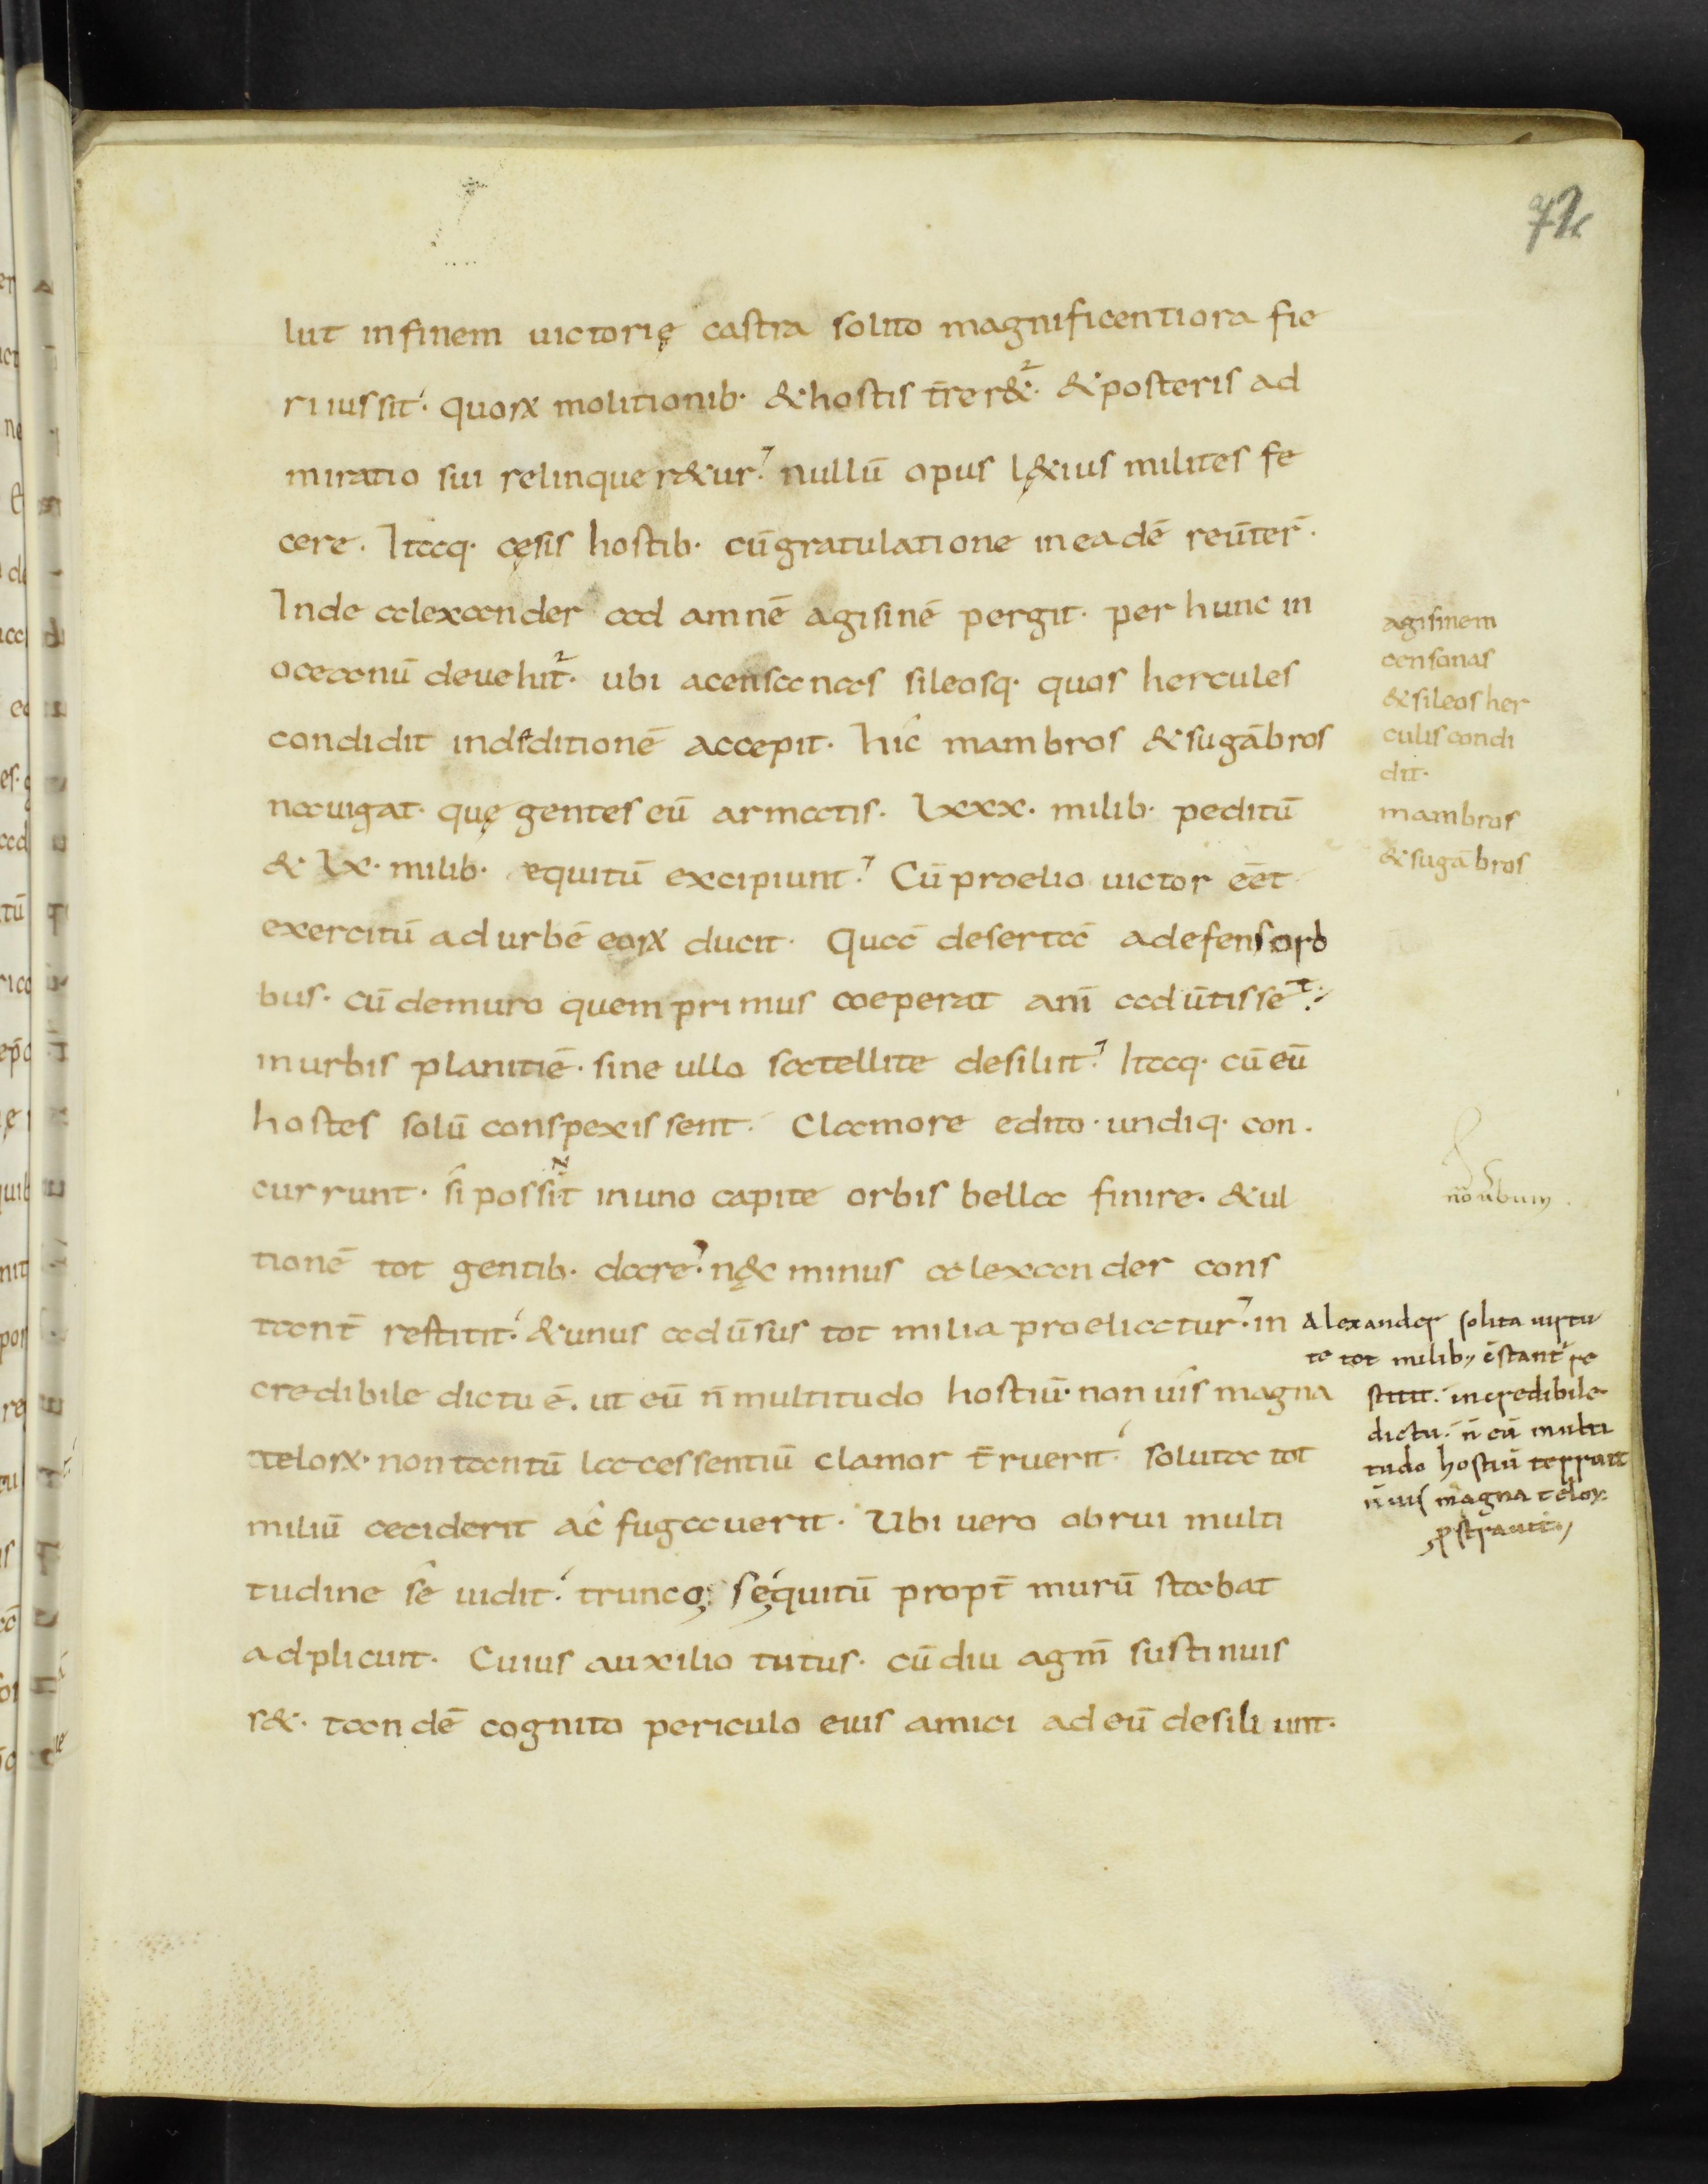 72
lut infinem uictorię castra solito magnificentiora fie
ri iussit. quoꝝ molitionib. & hostis t̄rer&ur. & posteris ad
miratio sui relinquer&ur. nullū opus lę&ius milites fe
cere. Itaq. cęsis hostib. cū gratulatione ineadē reūter̄.
Inde alexander ad amnē agisinē pergit. per hunc in
oceanū deuehit̄. ubi acensanas sileosq. quos hercules
condidit indeditionē accepit. hic mambros & sugābros
nauigat. quę gentes eū armatis. lxxx. milib. peditū
& lx. milib. equitū excipiunt. Cū proelio uictor eēt
exercitū ad urbē eoꝝ ducit. Quā desertā adefensori
bus. cū demuro quem primus coeperat anī adūtisset.
inurbis planitiē. sine ullo satellite desiliit. Itaq. cū eū
hostes solū conspexissent. Clamore edito. undiq. con.
currunt. si possint inuno capite orbis bella finire. & ul
tionē tot gentib. dare. nę& minus alexander cons
tant̄ restitit. & unus adūsus tot milia proeliatur. in
credibile dictu ē. ut eū n̄ multitudo hostiū. non uis magna
teloꝝ. non tantū lacessentiū clamor t̄ruerit. soluta tot
miliū ceciderit ac fugauerit. Ubi uero obrui multi
tudine se uidit. trunco sequitū propt̄ murū stabat
adplicuit. Cuius auxilio tutus. cū diu agm̄ sustinuis
s&. tandē cognito periculo eius amici ad eū desiliunt.
agisinem
censanas
& sileos her
culis condi
dit.
mambros
& sugābros
Alexander solita uirtu
te tot milib; c̄stant̄ re
stitit. incredibile
dictu. n̄ eū multi
tudo hostiū terruit
n̄ uis magna teloꝝ
ꝓstrauit.